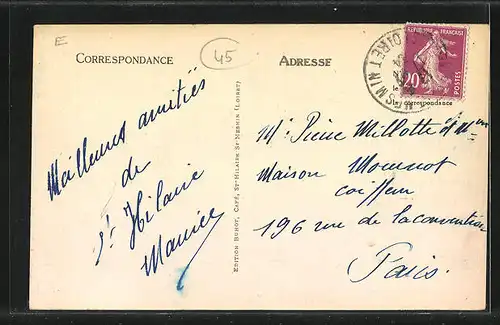 E
45
CORRESPONDANCE
Meilleures amitiés
de
St Hilaire
Maurice
EDITION BUHOT, CAFÉ, ST-HILAIRE ST-MESMIN (LOIRET)
ADRESSE
REPUBLIQUE FRANÇAISE
20
POSTES
LOIRET
la correspondance
Mr Pierre Millotte et Mme
Maison
coiffeur
196 rue de la convention
Paris.